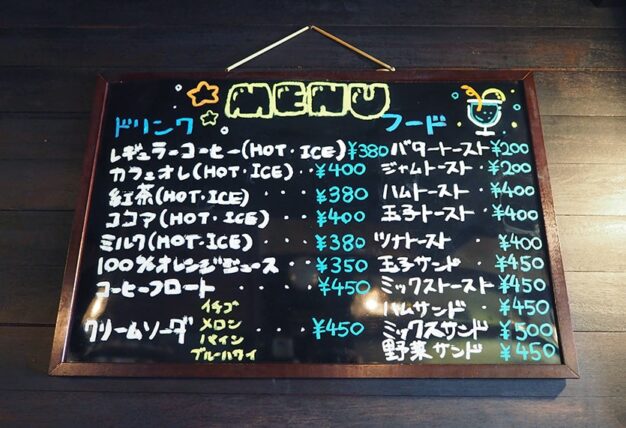 MENU
ドリンク
レギュラーコーヒー(HOT・ICE)¥380
カフェオレ(HOT・ICE)・・¥400
紅茶(HOT・ICE)・・・¥380
ココア(HOT・ICE)・・・¥400
ミルク(HOT・ICE)・・・¥380
100%オレンジジュース・・・¥350
コーヒーフロート・・・・¥450
クリームソーダ・・・・¥450
イチゴ
メロン
パイン
ブルーハワイ
フード
バタートースト¥200
ジャムトースト・¥200
ハムトースト・・¥400
玉子トースト・・¥400
ツナトースト・・¥400
玉子サンド・・¥450
ミックストースト・¥450
ハムサンド・・¥450
ミックスサンド・¥500
野菜サンド・¥450